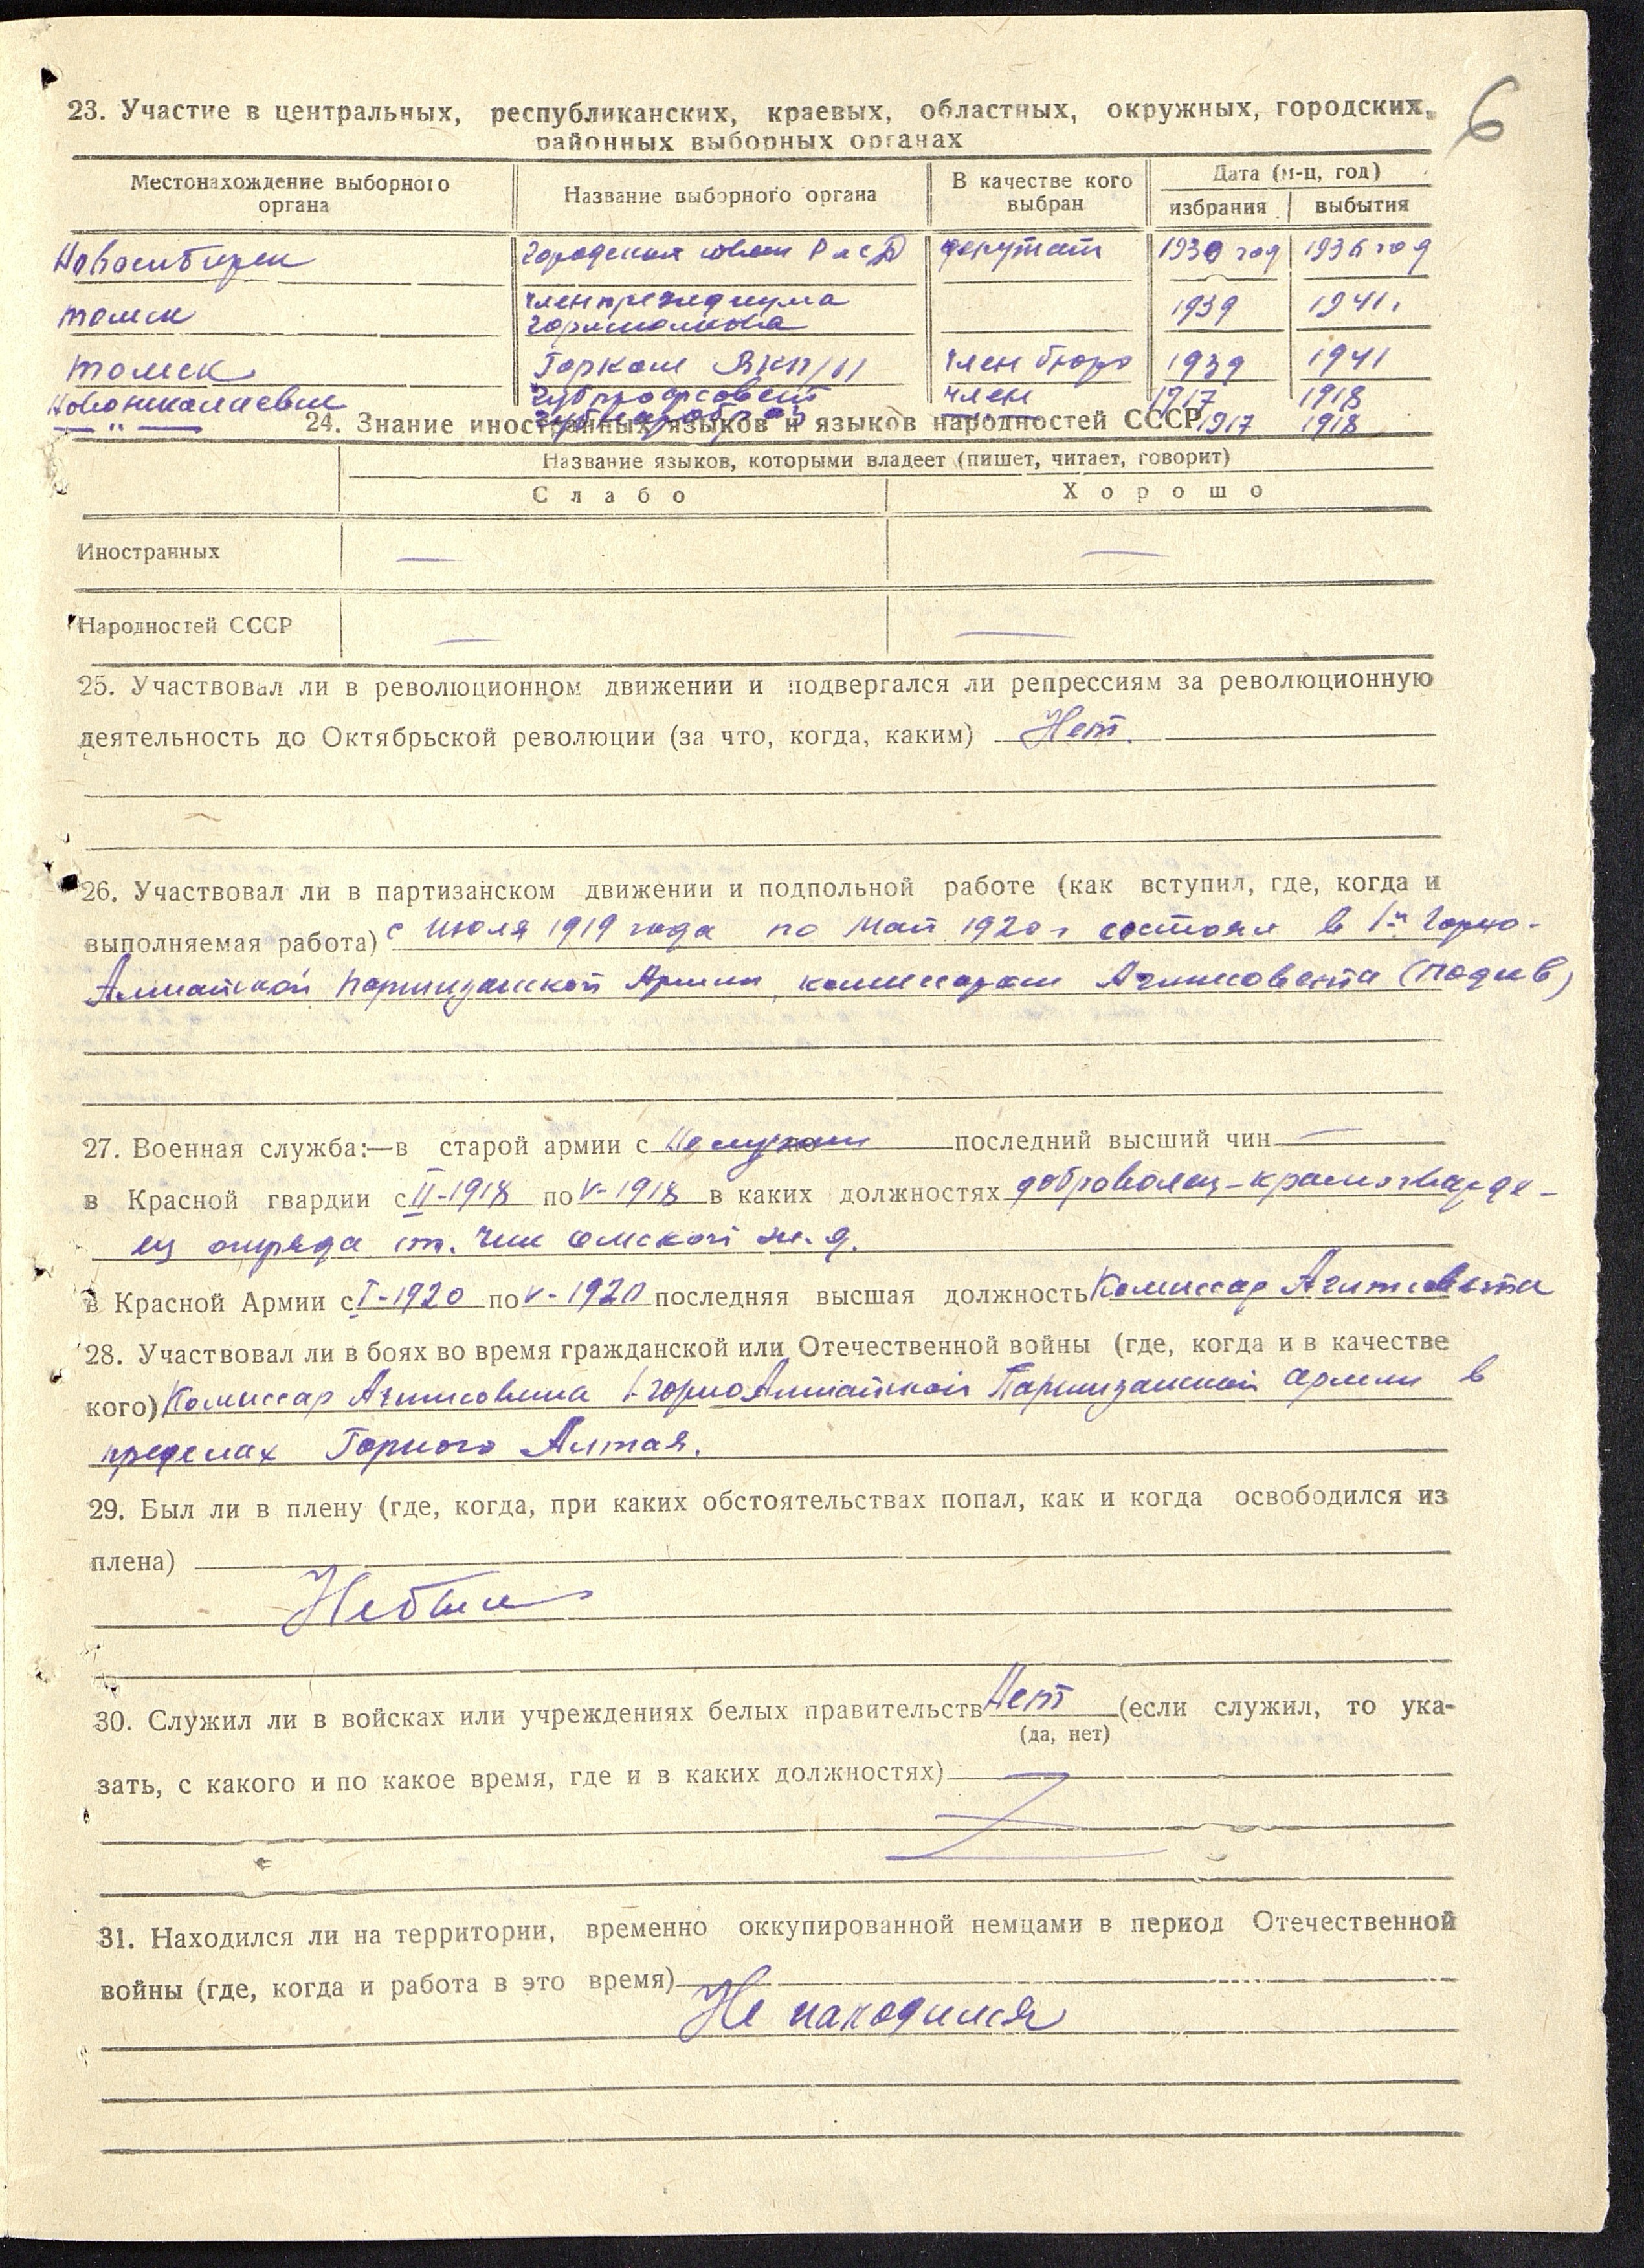 6
23. Участие в центральных, республиканских, краевых, областных, окружных, городских,
районных выборных органах
Местонахождение выборного органа | Название выборного органа | В качестве кого выбран | Дата (м-ц, год)
избрания | выбытия
Новосибирск | Городской совет Р и с Д | депутат | 1930 год | 1936 год
Томск | член президиума горисполкома | 1939 | 1941 г
Томск | Горком ВКП/б/ | член бюро | 1939 | 1941
Новониколаевск | Губпрофсовет | член | 1917 | 1918
— " — | 1917 | 1918
24. Знание иностранных языков и языков народностей СССР
Название языков, которыми владеет (пишет, читает, говорит)
Слабо | Хорошо
Иностранных — —
Народностей СССР — —
25. Участвовал ли в революционном движении и подвергался ли репрессиям за революционную
деятельность до Октябрьской революции (за что, когда, каким) Нет.
26. Участвовал ли в партизанском движении и подпольной работе (как вступил, где, когда и
выполняемая работа) с июля 1919 года по май 1920 г состоял в 1-й Горно-
Алтайской партизанской Армии, комиссаром Агитсовета (Подив)
27. Военная служба:—в старой армии с Не служил по последний высший чин —
в Красной гвардии с II-1918 по V-1918 в каких должностях доброволец-красногварде-
ец отряда ст. Чик Омской ж.д.
в Красной Армии с I-1920 по V-1920 последняя высшая должность Комиссар Агитсовета
28. Участвовал ли в боях во время гражданской или Отечественной войны (где, когда и в качестве
кого) Комиссар Агитсовета 1-Горно Алтайской Партизанской армии в
пределах Горного Алтая.
29. Был ли в плену (где, когда, при каких обстоятельствах попал, как и когда освободился из
плена)
Не был
30. Служил ли в войсках или учреждениях белых правительств Нет (если служил, то ука-
(да, нет)
зать, с какого и по какое время, где и в каких должностях) —
31. Находился ли на территории, временно оккупированной немцами в период Отечественной
войны (где, когда и работа в это время)
Не находился